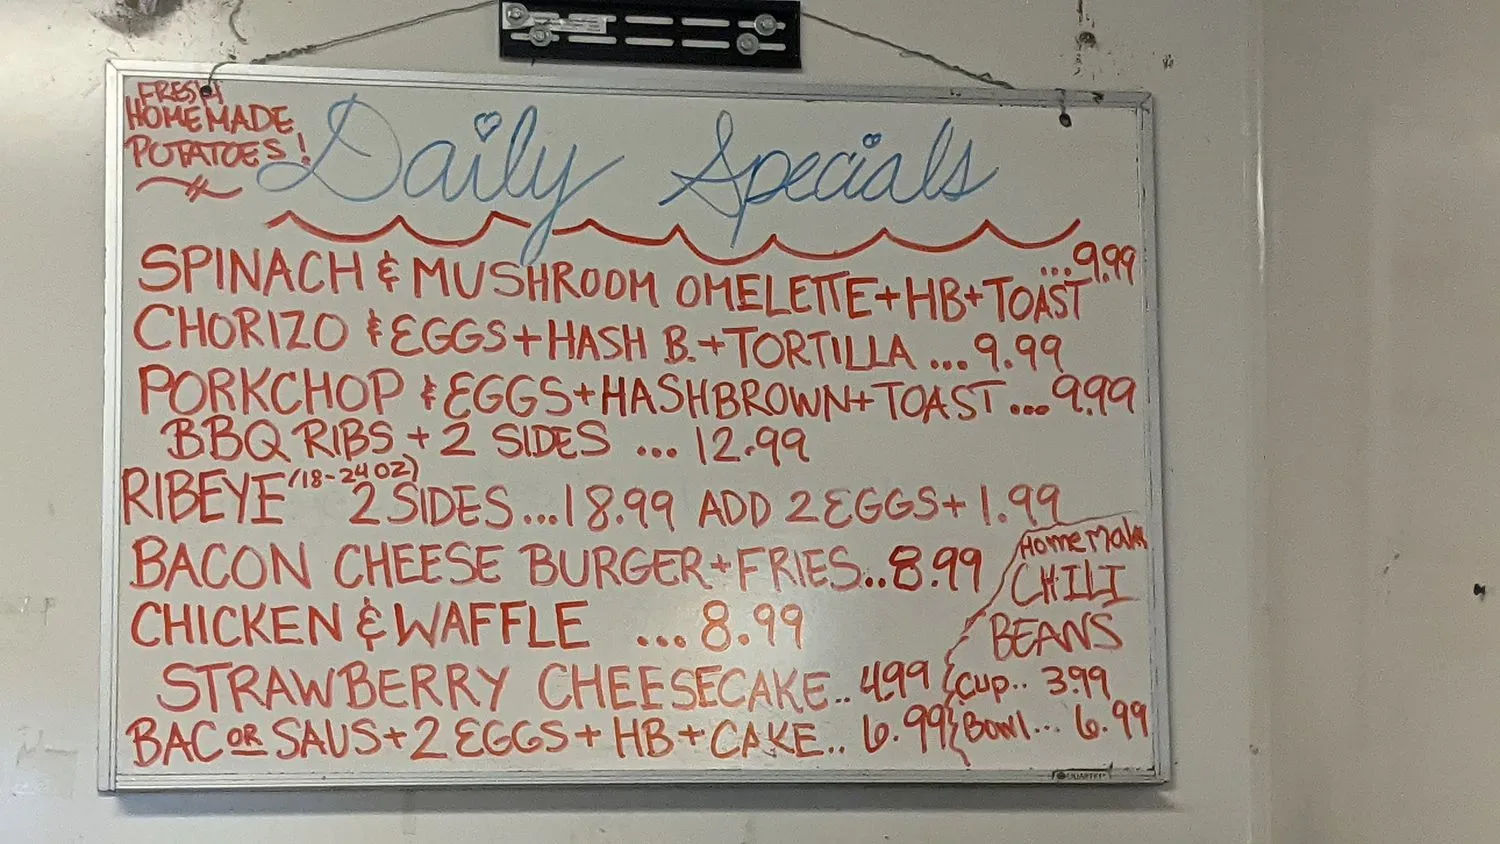 FRESH
HOMEMADE
POTATOES!
Daily Specials
SPINACH & MUSHROOM OMELETTE+HB+TOAST ...9.99
CHORIZO & EGGS+HASH B.+TORTILLA ...9.99
PORKCHOP & EGGS+HASHBROWN+TOAST...9.99
BBQ RIBS + 2 SIDES ... 12.99
RIBEYE (18-24OZ) 2 SIDES...18.99 ADD 2 EGGS+ 1.99
BACON CHEESE BURGER+FRIES..8.99
CHICKEN & WAFFLE ...8.99
STRAWBERRY CHEESECAKE..4.99
BAC OR SAUS+2 EGGS+HB+CAKE.. 6.99
Homemade
CHILI
BEANS
Cup.. 3.99
Bowl... 6.99
QUARTET